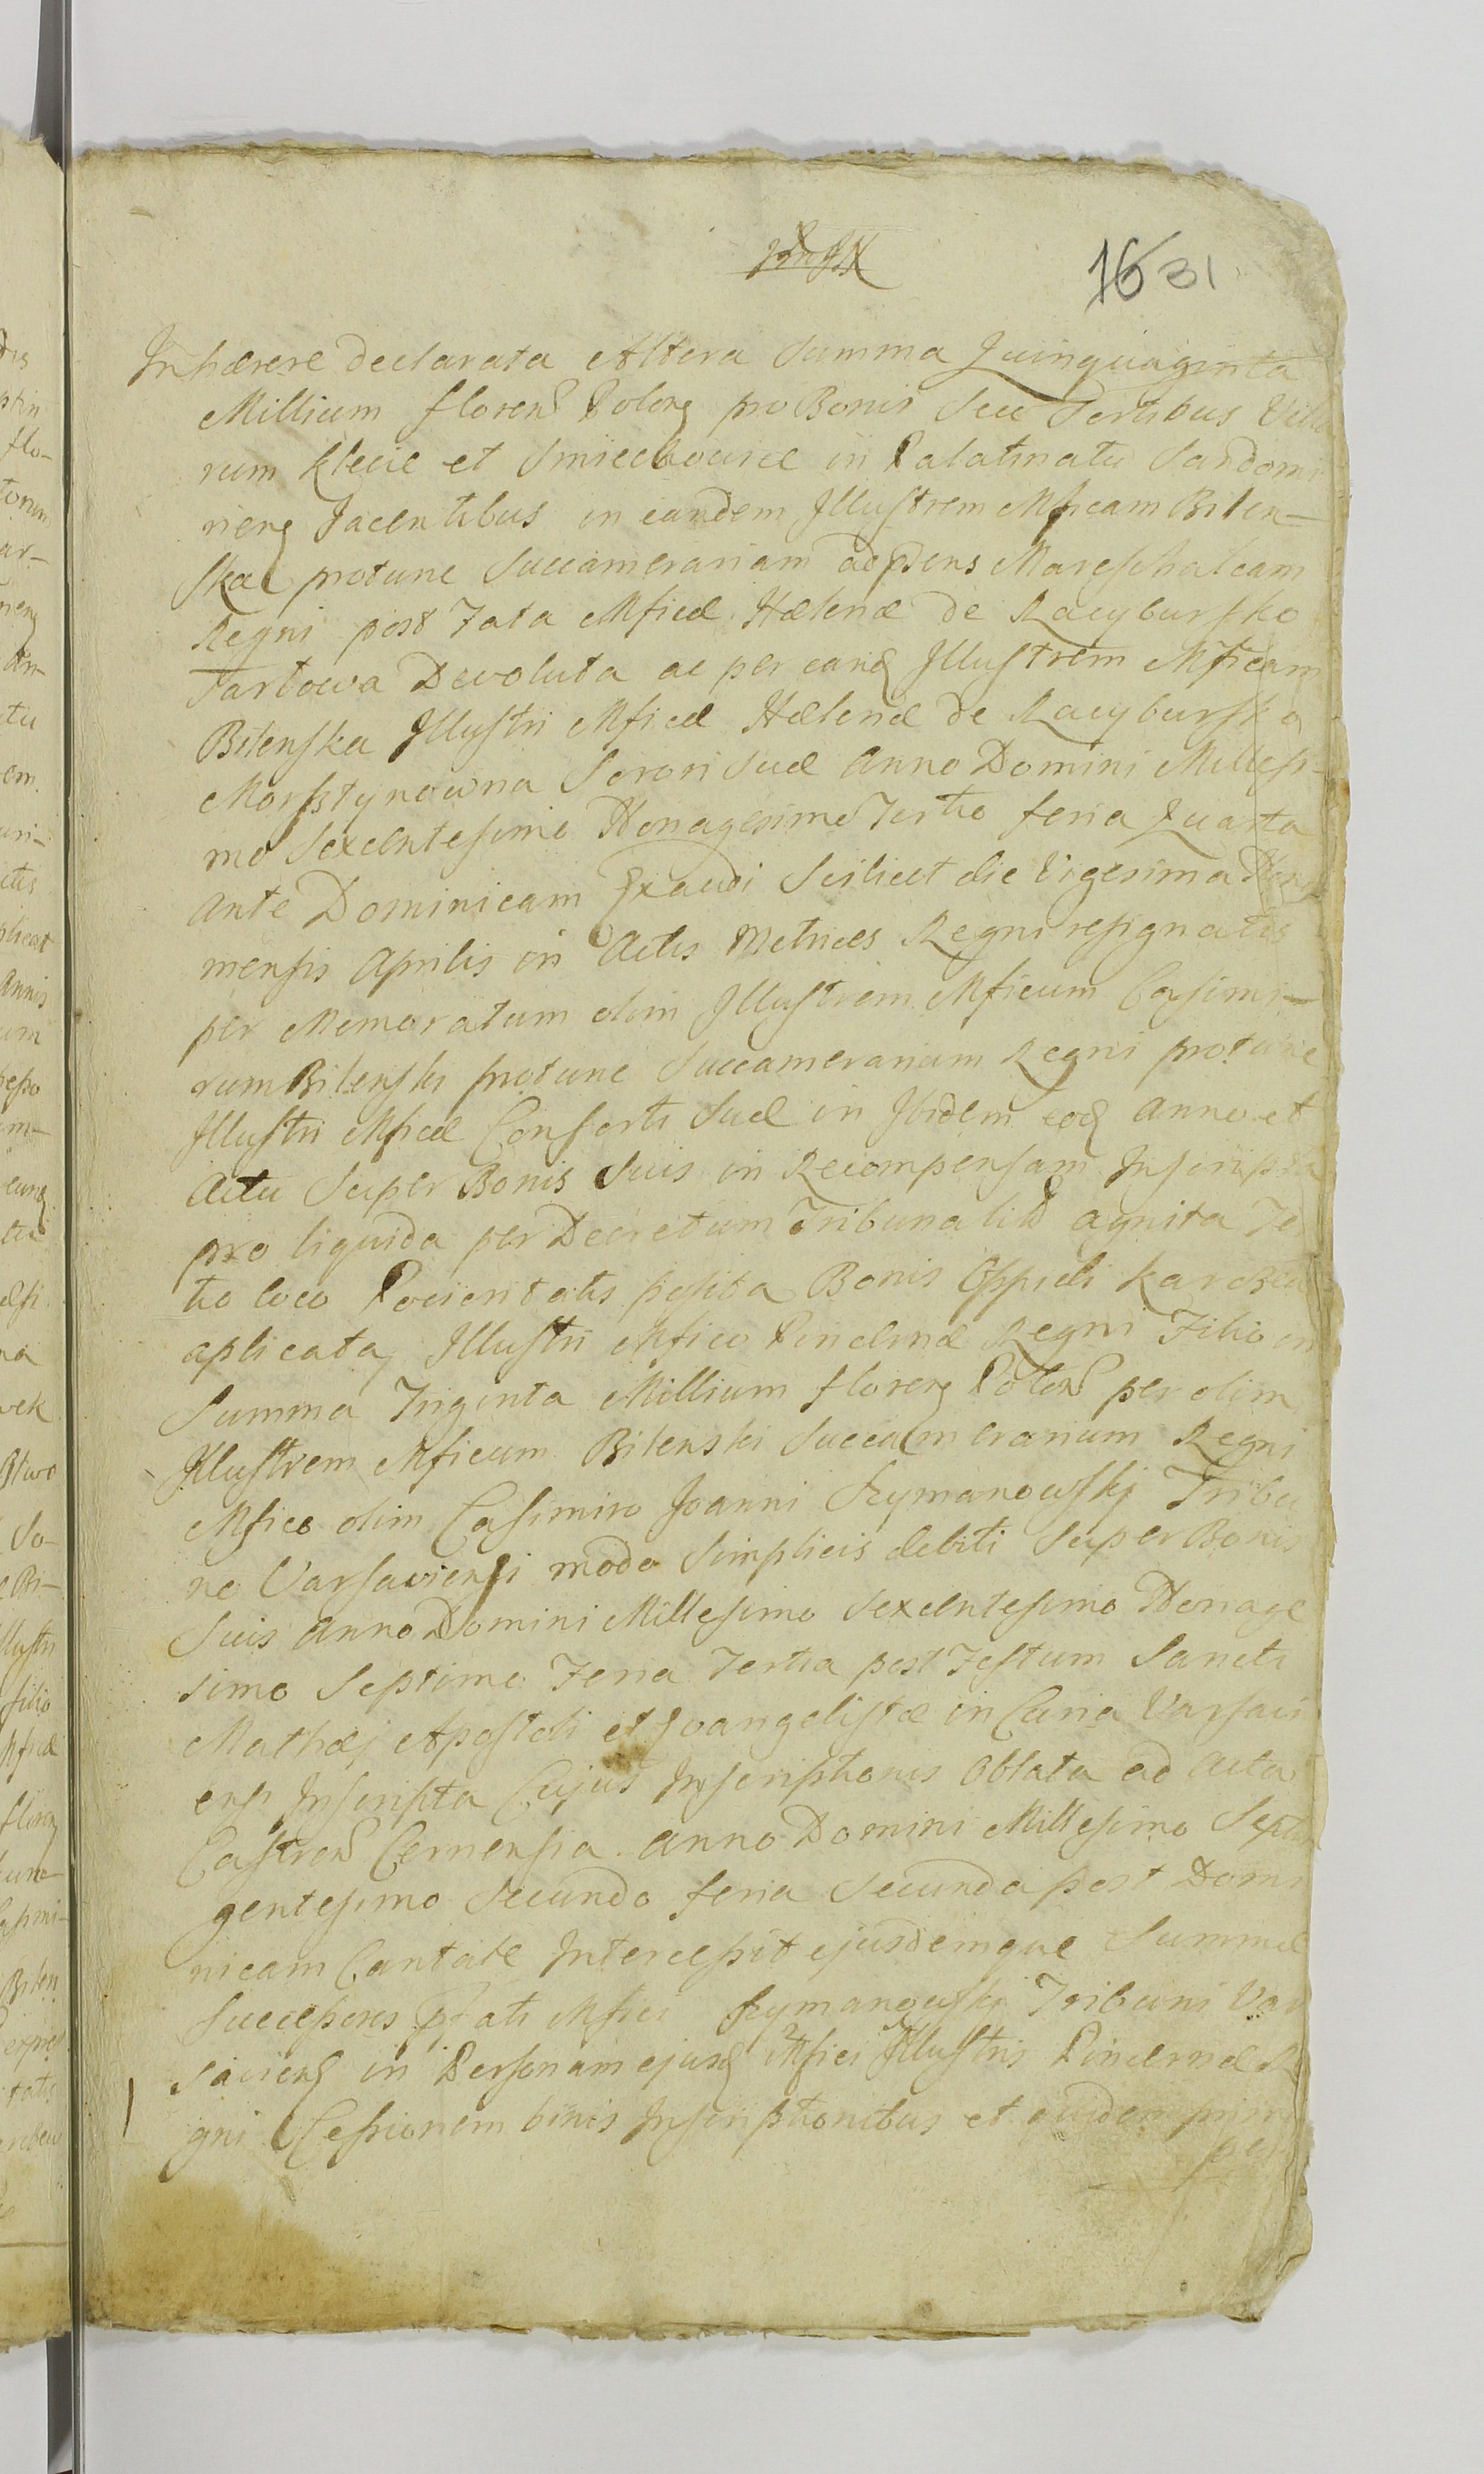 16 31
Inhærere declarata Altera Summa Quinquaginta
Millium floren Polong pro Bonis Seu Sortibus Villa
rum Klecie et Smiechowice in Palatinatu Sandomi
rieng Jacentibus in eandem Illustrem Mficam Bilen-
ska protunc Succamerariam ad psens Mareschalcam
Regni post Fata Mficæ Hælenæ de Raciborsko
Tarlowa Devoluta ac per eand Illustrem Mficam
Bilenska Illustri Mficæ Hælenæ de Raciborska
Morsztynowna Sorori Suæ Anno Domini Millesi-
mo Sexcentesimo Nonagesimo Tertio feria Quarta
ante Dominicam Exaudi Scilicet die Vigesima Nona
mensis Aprilis in Actis Metrices Regni resignatis
per Memoratum olim Illustrem Mficum Casimi-
rum Bilenski protunc Succamerarium Regni protunc
Illustri Mficæ Consorti Suæ in Ibidem eod anno et
Actu Super Bonis Suis in Recompensam Inscripta
pro liquida per Decretum Tribunalit agnita Ter
tio loco Pocioritatis posita Bonis Oppidi
aplicata, Illustri Mfico Pincernæ Regni Filio in
Summa Triginta Millium floreng Polon per olim
Illustrem Mficum Bilenski Succamerarium Regni
Mfico olim Casimiro Joanni Szymanowskj Tribu
no Varsaviensi modo Simplicis debiti Super Bonis
Suis Anno Domini Millesimo Sexcentesimo Nonage
simo Septimo Feria Tertia post Festum Sancti
Mathæj Apostoli et Evangelistæ in Curia Varsavi
ensi Inscripta Cujus Inscriptionis Oblata ad Acta
Castren Cernensia Anno Domini Millesimo Septin
gentesimo Secundo feria Secunda post Domi
nicam Cantate Intercessit ejusdemque Summæ
Successores pfati Mfici Szymanowskj Tribuni Var
savieng in Personam ejusd Mfici Illustris Pincernæ Re
gni Cessionem binis Inscriptionibus et quidem prima
per